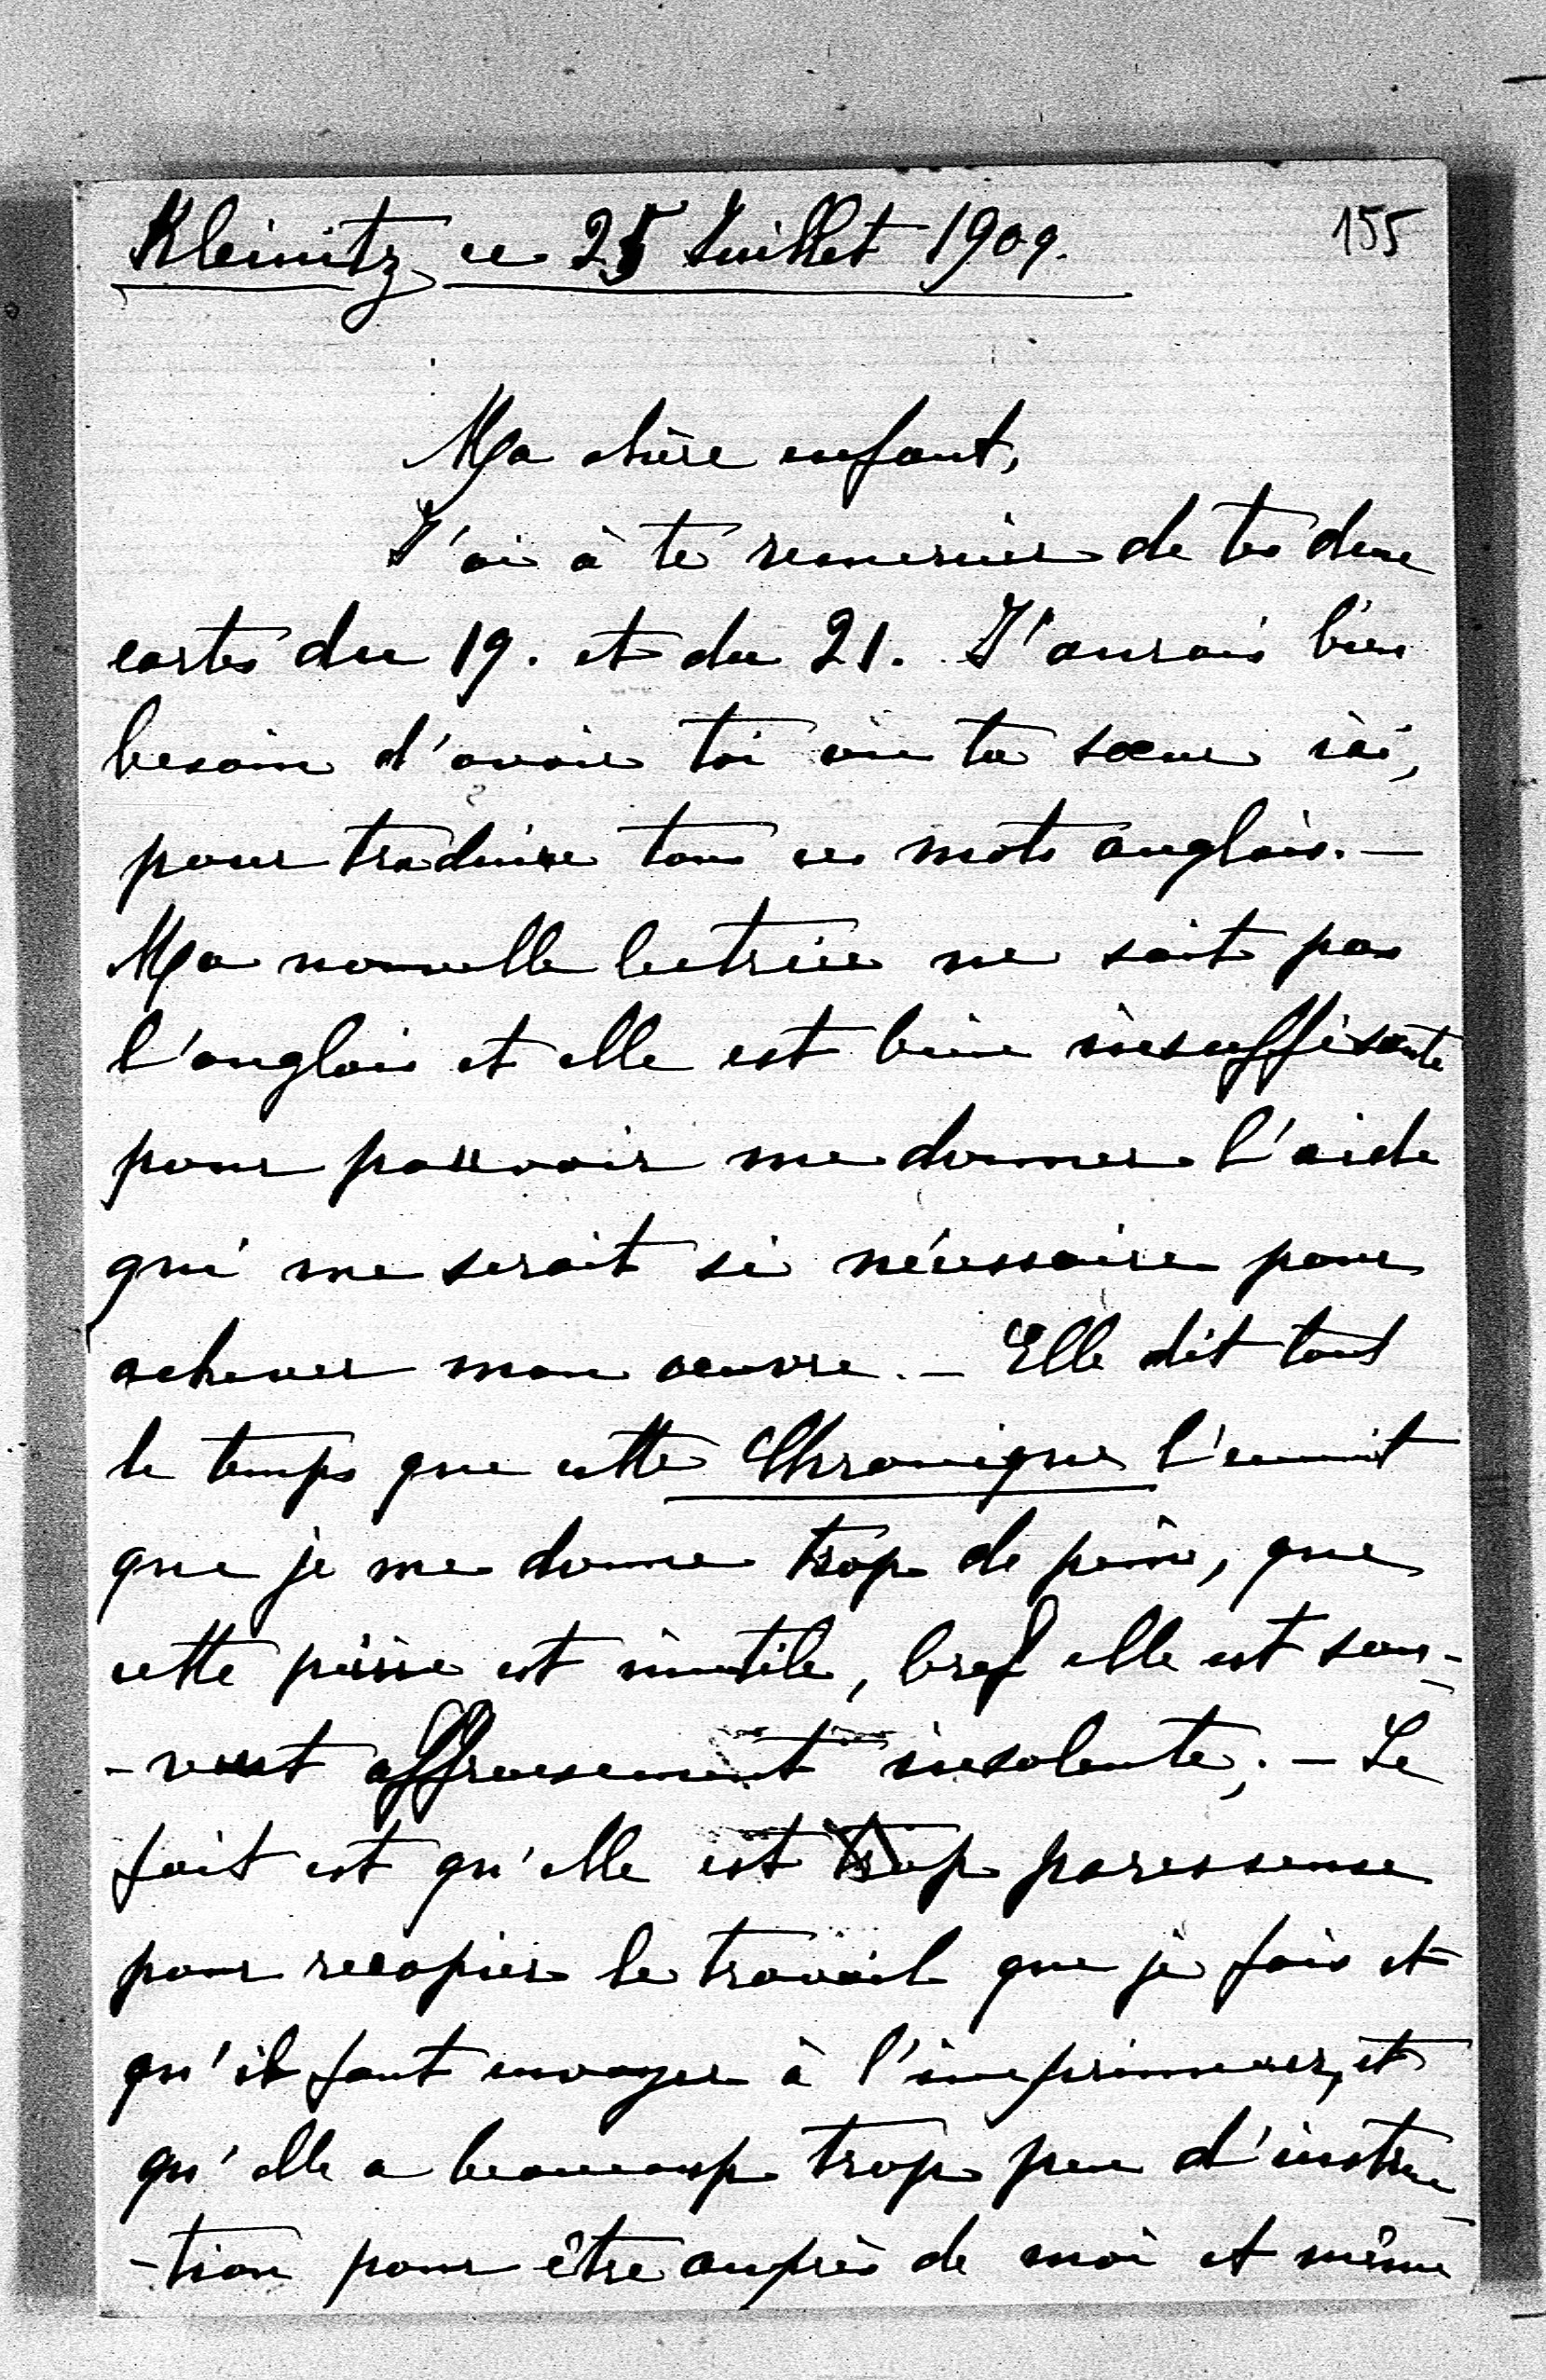 Kleinitz, ce 25 Juillet 1909.
155
Ma chère enfant,
J'ai à te remercier de tes deux
cartes du 19. et du 21. J'aurais bien
besoin d'avoir toi ou ta sœur ici,
pour traduire tous ces mots anglais. —
Ma nouvelle lectrice ne sait pas
l'anglais et elle est bien insuffisante
pour pouvoir me donner l'aide
qui me serait si nécessaire pour
achever mon œuvre. — Elle dit tout
le temps que cette Chronique l'ennuit
que je me donne trop de peine, que
cette peine est inutile, bref elle est sou-
-vent affreusement insolente; — Le
fait est qu'elle est trop paresseuse
pour recopier le travail que je fais et
qu'il faut envoyer à l'imprimeur, et
qu'elle a beaucoup trop peu d'instruc-
-tion pour être auprès de moi et même